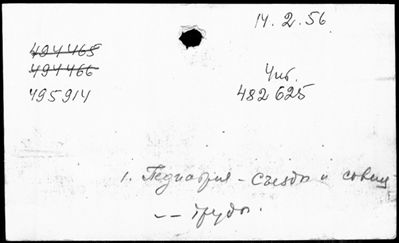 14.2.56.
494465
494466
Чиб.
495914
482625
1. Педиатрия - съезды и совещ
-- труды.